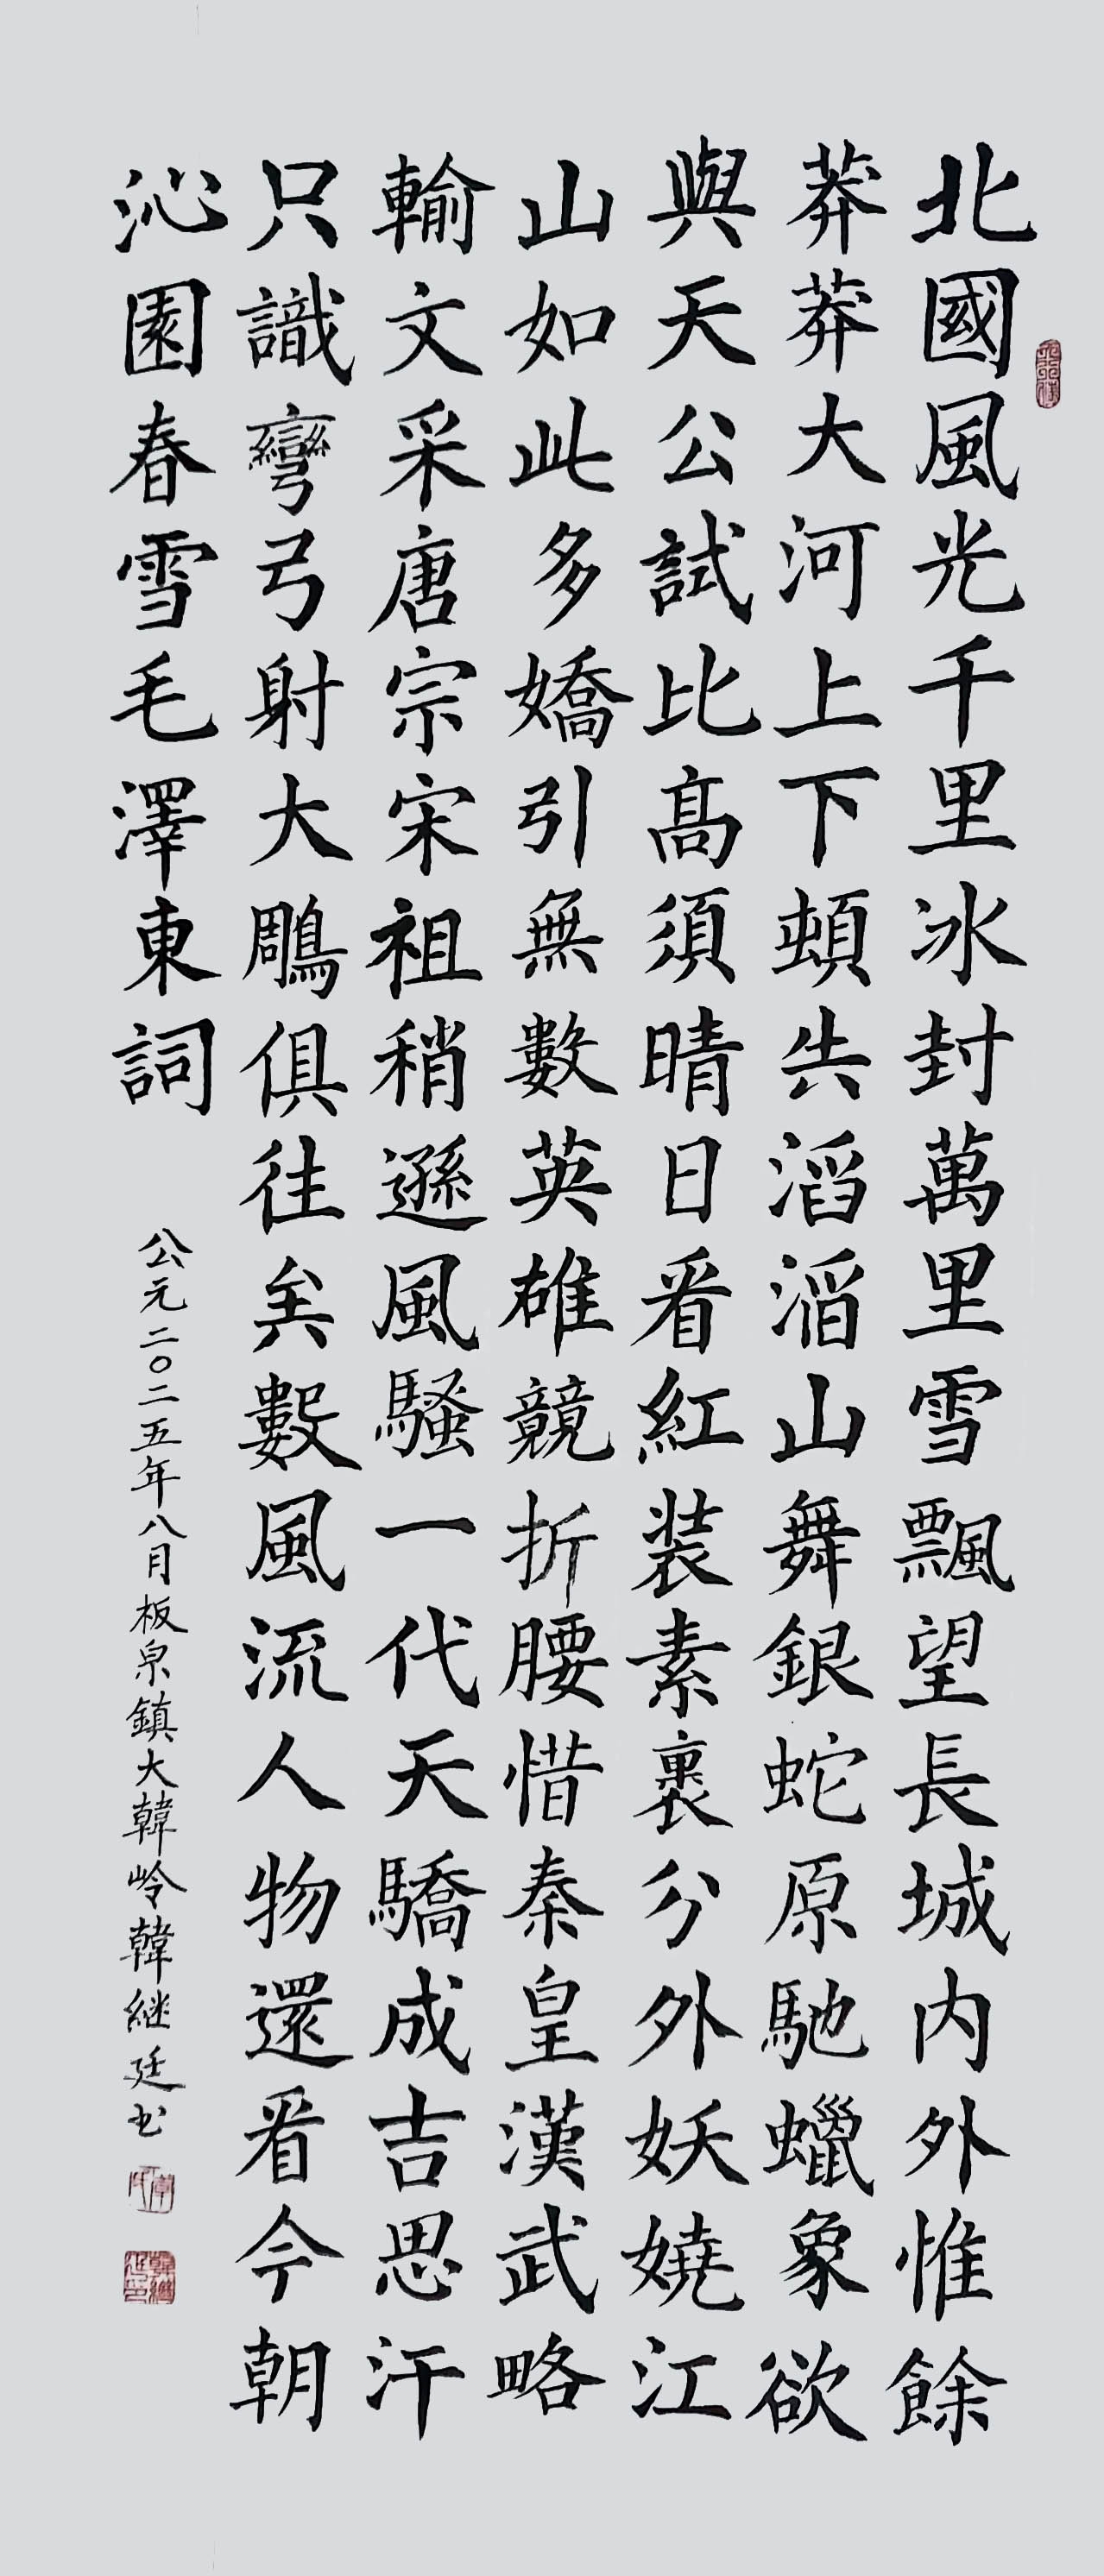 北國風光千里冰封萬里雪飄望長城内外惟餘
莽莽大河上下頓失滔滔山舞銀蛇原馳蠟象欲
與天公試比髙須晴日看紅装素裹分外妖嬈江
山如此多嬌引無數英雄競折腰惜秦皇漢武略
輸文采唐宗宋祖稍遜風騷一代天驕成吉思汗
只識彎弓射大鵰俱往矣數風流人物還看今朝
沁園春雪毛澤東詞
公元二〇二五年八月板泉鎮大韓岭韓継廷书